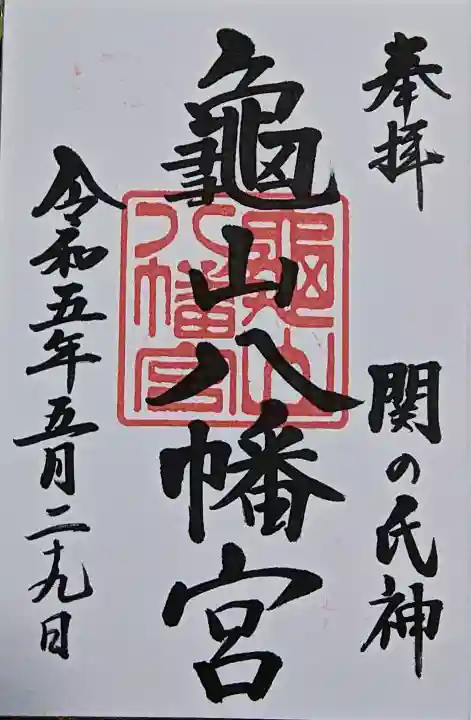 奉拝
関の氏神
龜山八幡宮
龜山
八幡宮
令和五年五月二十九日